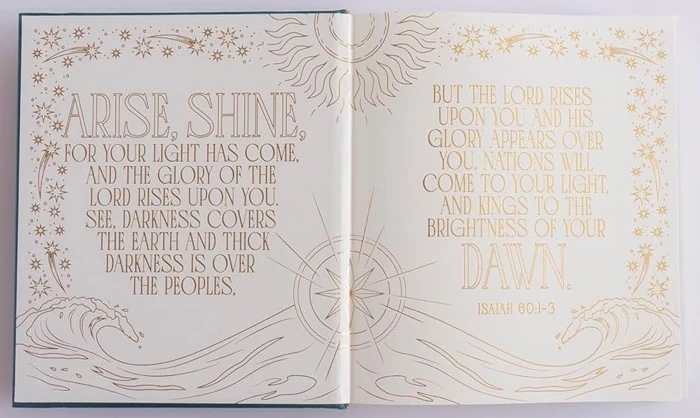 ARISE, SHINE,
FOR YOUR LIGHT HAS COME,
AND THE GLORY OF THE
LORD RISES UPON YOU.
SEE, DARKNESS COVERS
THE EARTH AND THICK
DARKNESS IS OVER
THE PEOPLES,
BUT THE LORD RISES
UPON YOU AND HIS
GLORY APPEARS OVER
YOU. NATIONS WILL
COME TO YOUR LIGHT,
AND KINGS TO THE
BRIGHTNESS OF YOUR
DAWN.
ISAIAH 60:1-3